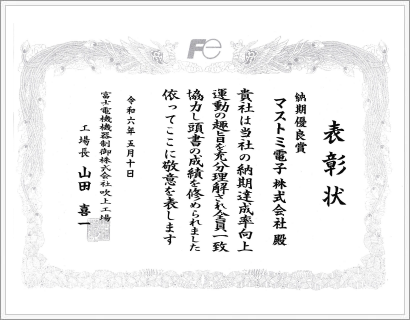 Fe
表彰状
納期優良賞
マストミ電子株式会社 殿
貴社は当社の納期達成率向上
運動の趣旨を充分理解され全員一致
協力し頭書の成績を修められました
依ってここに敬意を表します
令和六年五月十日
富士電機機器制御株式会社吹上工場
工場長 山田 喜一